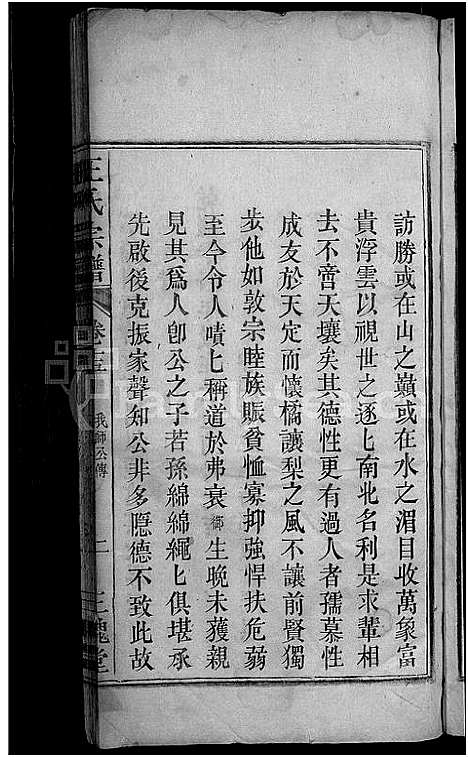 訪勝或在山之巔或在水之湄目收萬象富
貴浮雲以視世之逐匕南北名利是求輩相
去不啻天壤矣其德性更有過人者孺慕性
成友於天定而懷橘讓梨之風不讓前賢獨
步他如敦宗睦族賑貧恤寡抑強悍扶危弱
至今令人嘖匕稱道於弗衰御生晚未獲親
見其爲人卽公之子若孫綿綿繩匕俱堪承
先啟後克振家聲知公非多隱德不致此故
王氏宗譜
卷三
我師公傳
二
三槐堂